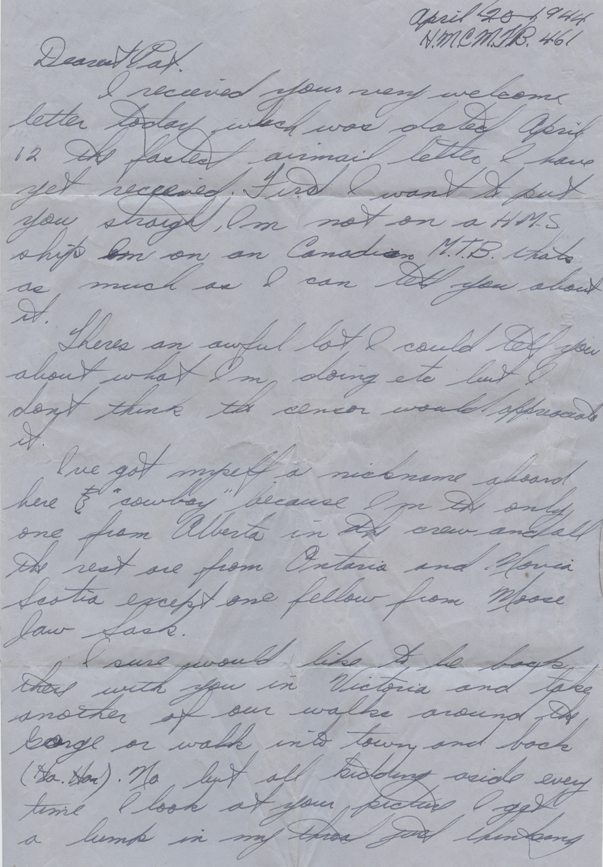 April 20 1944
H.M.C.M.T.B. 461
Dearest Pat.
I recieved your very welcome
letter today which was dated April
12 the fastest airmail letter I have
yet recieved. First I want to put
you straigh, I'm not on a H.M.S
ship Im on an Canadian M.T.B. thats
as much as I can tell you about
it.
Theres an awful lot I could tell you
about what I'm doing etc but I
dont think the censor would appreciate
it.
I've got myself a nickname aboard
here "cowboy" because I'm the only
one from Alberta in the crew and all
the rest are from Ontario and Nova
Scotia except one fellow from Moose
Jaw Sask.
I sure would like to be back
there with you in Victoria and take
another of our walks around the
Gorge or walk into town and back
(Ha. Ha). No but all kidding aside every
time I look at your picture I get
a lump in my thinking